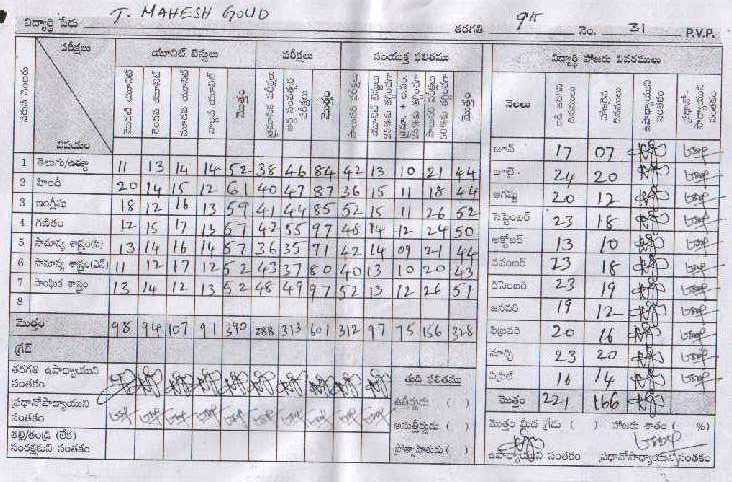 విద్యార్థి పేరు T. MAHESH GOUD తరగతి 9th నెం. 31 P.V.P.
పరీక్షలు యూనిట్ టెస్టులు పరీక్షలు సంయుక్త ఫలితము విద్యార్థి హాజరు వివరములు
విషయం మొత్తం మొత్తం మొత్తం నెలలు
1 తెలుగు/ఉర్దూ 11 13 14 14 52 38 46 84 42 13 10 21 44
2 హిందీ 20 14 15 12 61 40 47 87 36 15 11 18 44
3 ఇంగ్లీషు 18 12 16 13 59 41 44 85 52 15 11 26 52
4 గణితం 12 15 17 13 57 42 55 97 48 14 12 24 50
5 సామాన్య శాస్త్రం 13 14 16 14 57 36 35 71 42 14 09 21 44
6 సామాన్య శాస్త్రం 11 12 17 12 52 43 37 80 40 13 10 20 43
7 సాంఘిక శాస్త్రం 13 14 12 13 52 48 49 97 52 13 12 26 51
8
మొత్తం 98 94 107 91 390 288 313 601 312 97 75 156 328
గ్రేడ్
తరగతి ఉపాధ్యాయుని సంతకం
ప్రధానోపాధ్యాయుని సంతకం
తల్లి/తండ్రి (లేక) సంరక్షకుని సంతకం
తుది ఫలితము
ఉత్తీర్ణుడు ( )
అనుత్తీర్ణుడు ( )
ప్రోత్సాహితుడు ( )
జూన్ 17 07
జూలై 24 20
ఆగష్టు 20 12
సెప్టెంబర్ 23 18
అక్టోబర్ 13 10
నవంబర్ 23 18
డిసెంబర్ 23 19
జనవరి 19 12
ఫిబ్రవరి 20 16
మార్చి 23 20
ఏప్రిల్ 16 14
మొత్తం 221 166
మొత్తం మీద గ్రేడు ( ) హాజరు శాతం ( %)
ఉపాధ్యాయుని సంతకం ప్రధానోపాధ్యాయుని సంతకం